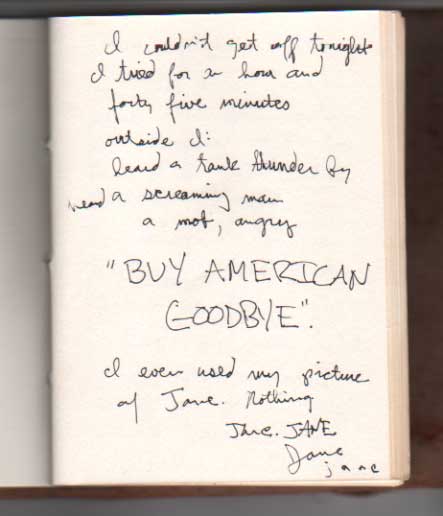 I couldn't get off tonight
I tried for an hour and
forty five minutes
outside I:
heard a tank thunder by
heard a screaming man
a mob, angry
"BUY AMERICAN
GOODBYE".
I even used my picture
of Jane. Nothing
Jane. JANE
Jane
jane